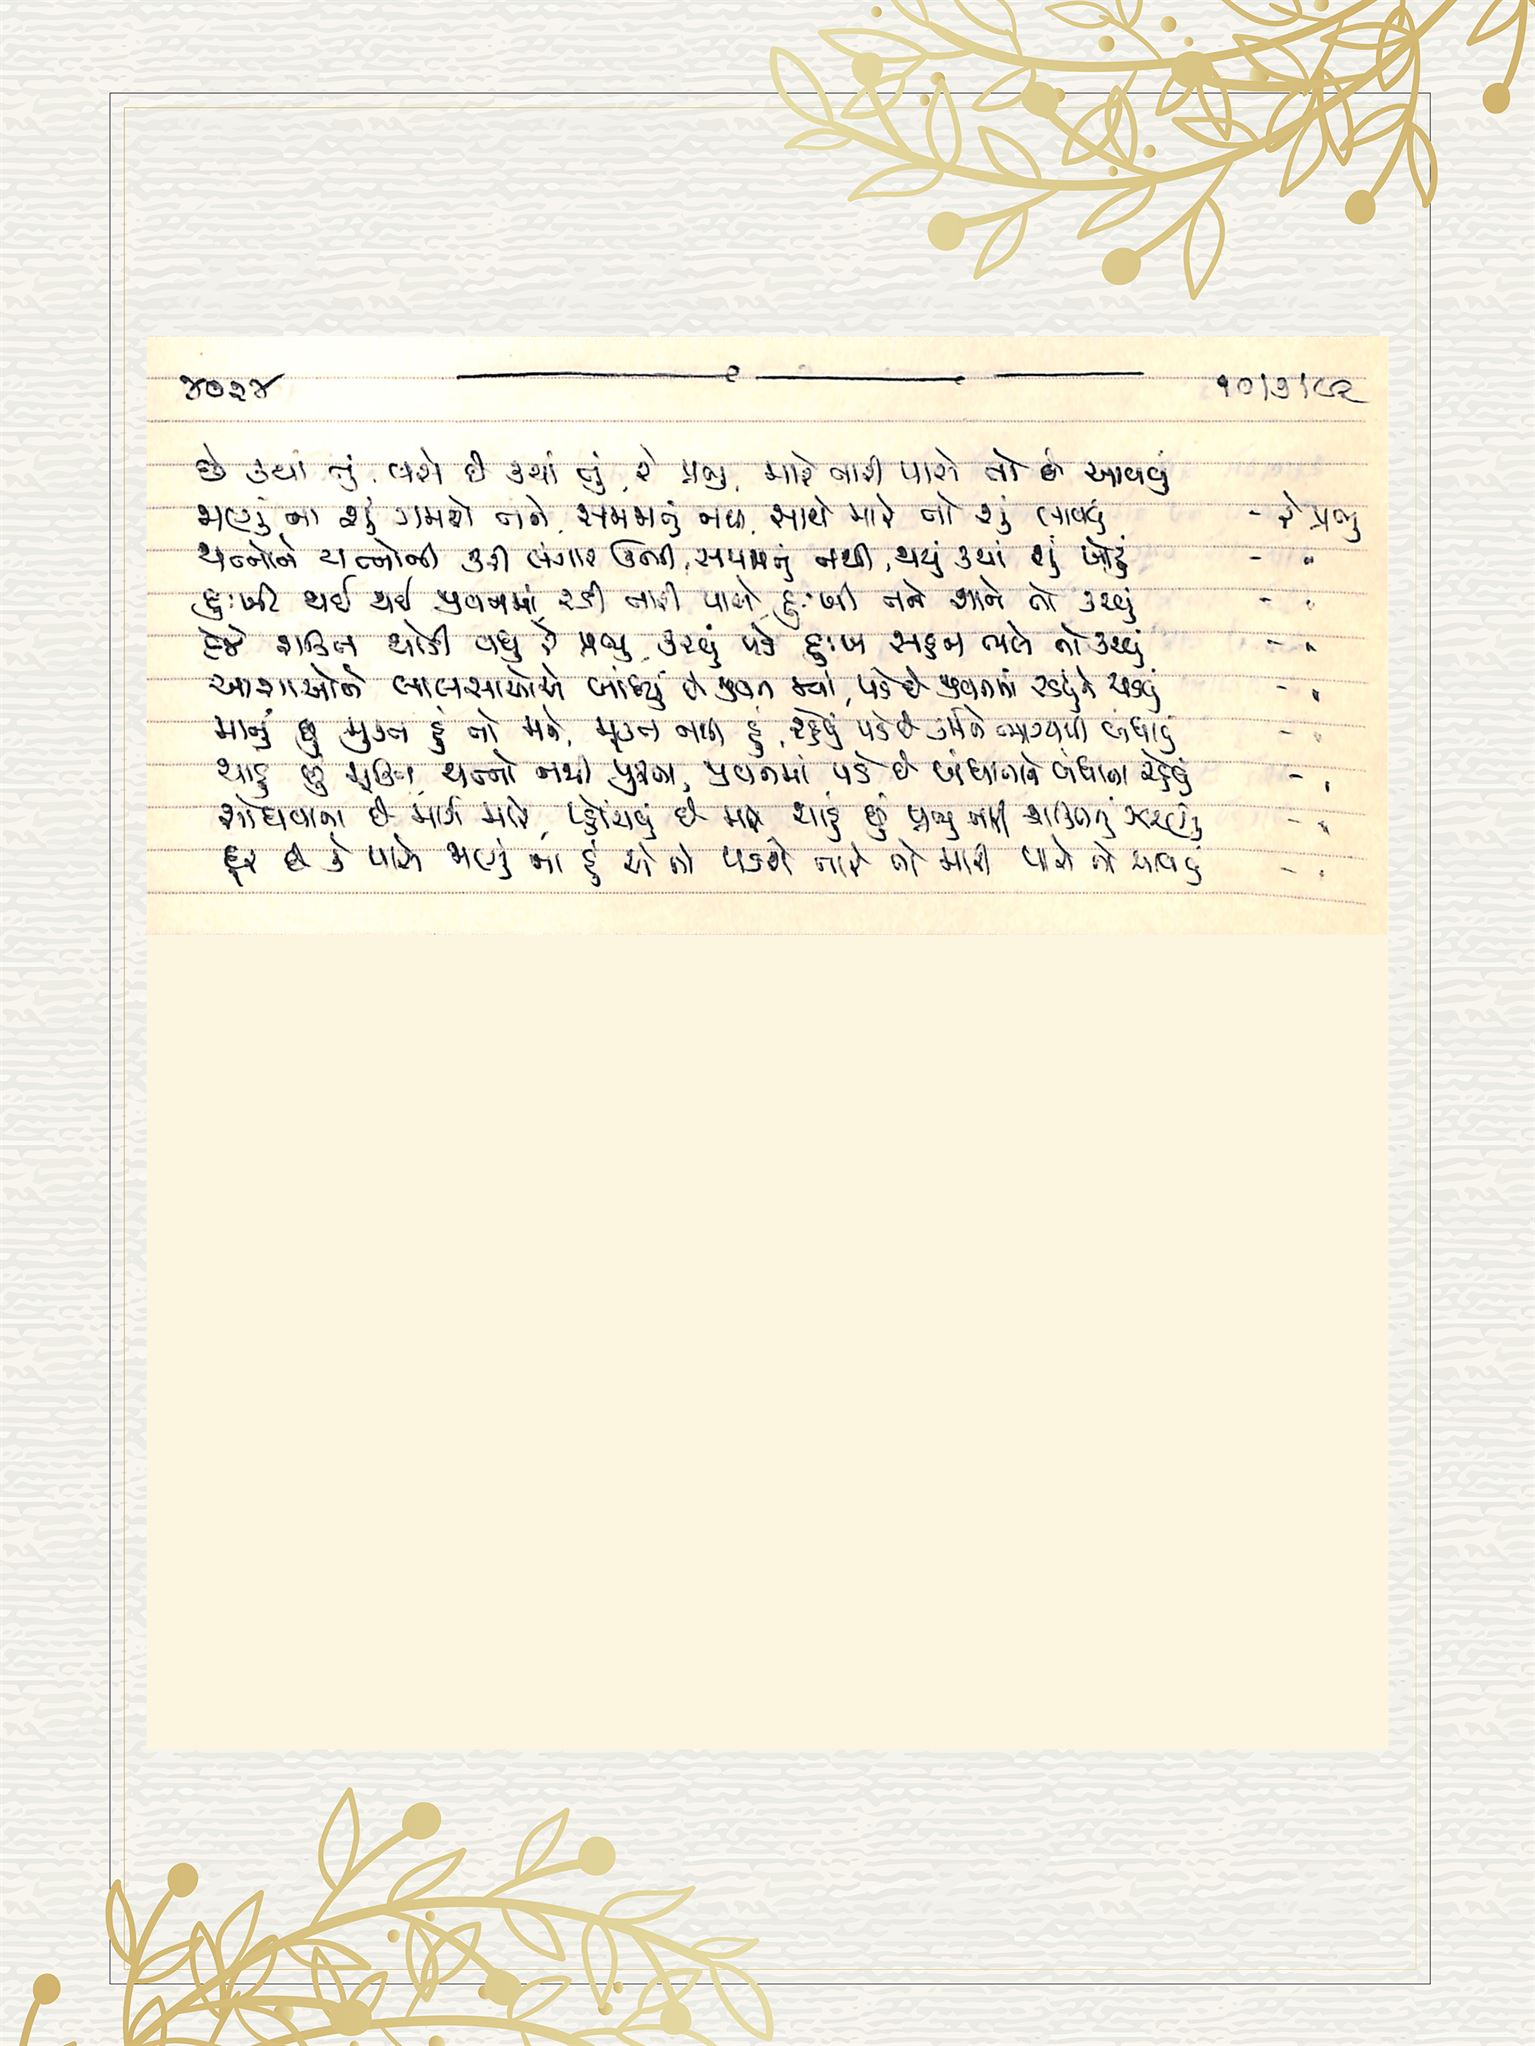 ૪૦૨૪ ૧૦/૭/૯૨
છે ક્યાં તું વસે છે ક્યાં તું, રે પ્રભુ, મારે તારી પાસે તો છે આવવું
જાણું ના શું ગમશે તને, સમજાતું નથી, સાથે મારે તો શું લાવવું - રે પ્રભુ
યત્નોને યત્નોની કરી લંગાર ઊભી, સમજાતું નથી, થયું ક્યાં શું ખોટું - "
દુઃખી થઈ થઈ જીવનમાં રડી તારી પાસે, દુઃખી તને શાને તો કરવું - "
દેજે શક્તિ થોડી વધુ રે પ્રભુ, કરવું પડે દુઃખ સહન ભલે તો કરવું - "
આશાઓને લાલસાઓએ બાંધ્યું છે જીવન જ્યાં, પડે છે જીવનમાં રડવું ને પડવું - "
માનું છું મુક્ત હું તો મને, મુક્ત નથી હું, રહેવું પડે છે કર્મને ભાગ્યથી બંધાવું - "
ચાહું છું મુક્તિ, યત્નો નથી પૂરતા, જીવનમાં પડે છે બંધાતાને બંધાતા રહેવું - "
શોધવાના છે માર્ગ મારે, પહોંચવું છે મારે ચાહું છું પ્રભુ તારી શક્તિનું ઝરણું - "
દૂર છે કે પાસે જાણું ના હું એ તો પડશે તારે તો મારી પાસે તો આવવું - "